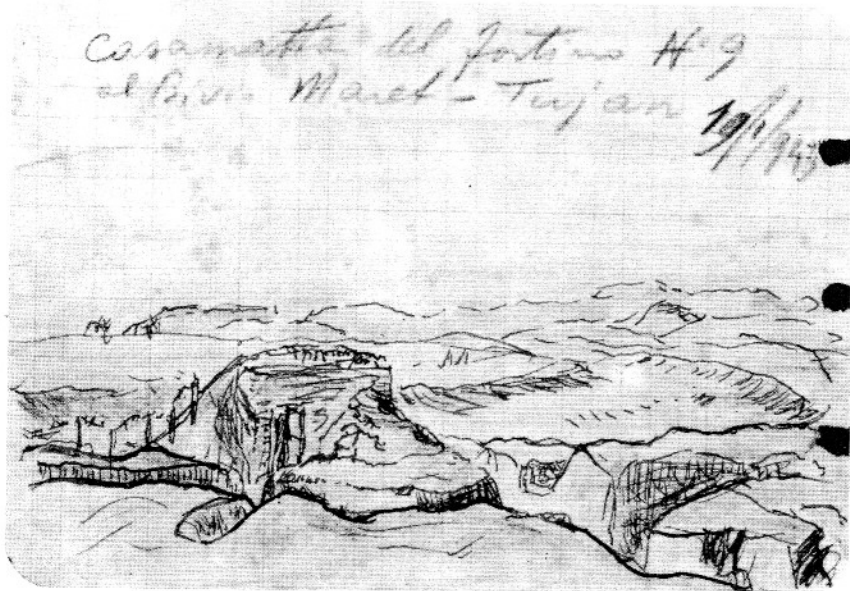 Casamatta del fortino N° 9
al Bivio Maret - Tujan
19/1/943